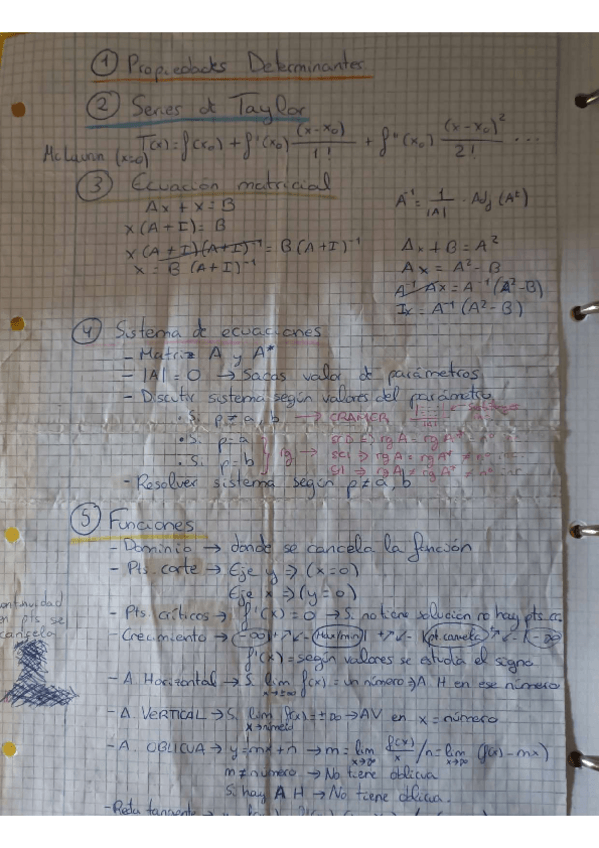 ① Propiedades Determinantes
② Series de Taylor
McLaurin (x=0) T(x) = f(x₀) + f'(x₀) (x-x₀)/1! + f''(x₀) (x-x₀)²/2! ...
③ Ecuación matricial
Ax + x = B
x(A+I) = B
x(A+I)(A+I)⁻¹ = B(A+I)⁻¹
x = B (A+I)⁻¹
A⁻¹ = 1/|A| · Adj (Aᵗ)
Ax + B = A²
Ax = A² - B
A⁻¹Ax = A⁻¹(A²-B)
Ix = A⁻¹(A²-B)
④ Sistema de ecuaciones
- Matriz A y A*
- |A| = 0 → Sacas valor de parámetros
- Discutir sistema según valores del parámetro
· Si p ≠ a, b → CRAMER
· Si p = a
· Si p = b
} rg → SCD ⇒ rg A = rg A* = nº inc
SCI ⇒ rg A = rg A* ≠ nº inc
SI ⇒ rg A ≠ rg A* ≠ nº inc
- Resolver sistema según p ≠ a, b
⑤ Funciones
- Dominio → donde se cancela la función
- Pts. corte → Eje y ⇒ (x=0)
Eje x ⇒ (y=0)
- Pts. críticos → f'(x) = 0 → Si no tiene solución no hay pts. cr.
- Crecimiento → (-∞) + ↗ ↙ - (Max/min) + ↗ ↙ - (pt. cancela) ↗ ↙ - (-∞)
f'(x) = según valores se estudia el signo
en pts. se
cancela
- A. Horizontal → Si lim x→±∞ f(x) = un número ⇒ A. H en ese número
- A. VERTICAL → Si lim x→número f(x) = ±∞ → AV en x = número
- A. OBLICUA → y = mx + n → m = lim x→∞ f(x)/x / n = lim x→∞ (f(x) - mx)
m ≠ número → No tiene oblicua
Si hay A H → No tiene oblicua.
- Recta tangente →